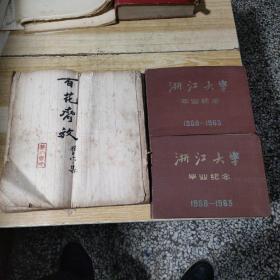 百花齐放
浙江大学
毕业纪念
1958-1963
浙江大学
毕业纪念
1958-1963